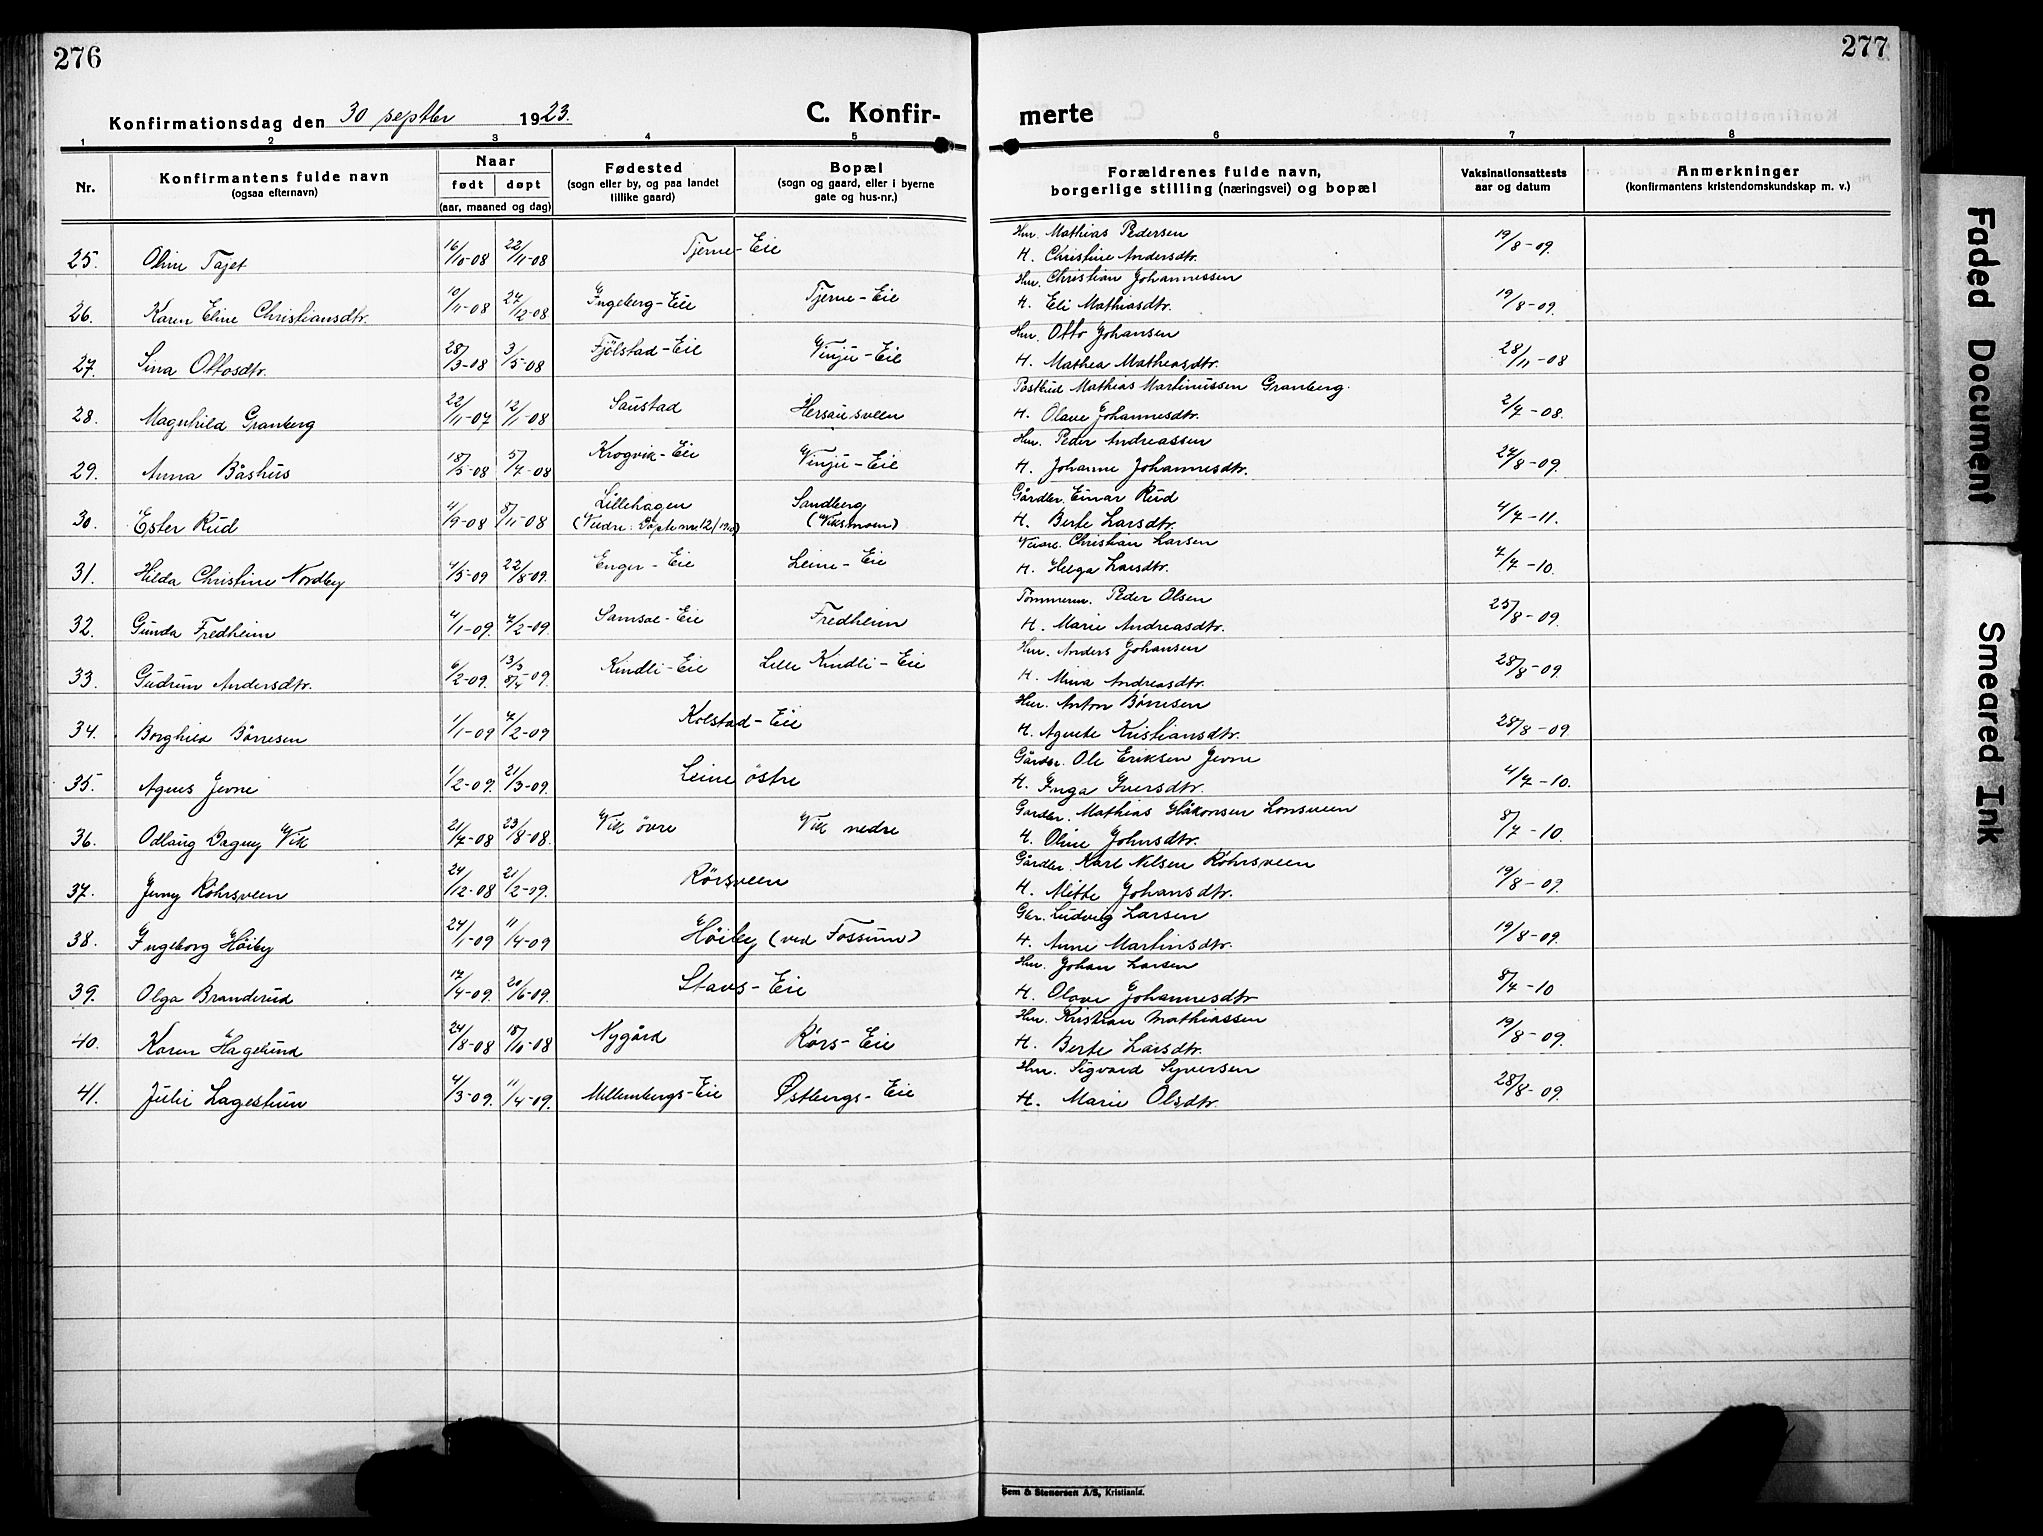 276
277
Konfirmationsdag den 30 septbr 1923.
C. Konfir-
merte
1 2 3 4 5 6 7 8
Nr.
Konfirmantens fulde navn
(ogsaa efternavn)
Naar
født døpt
(aar, maaned og dag)
Fødested
(sogn eller by, og paa landet
tillike gaard)
Bopæl
(sogn og gaard, eller i byerne
gate og hus-nr.)
Forældrenes fulde navn,
borgerlige stilling (næringsvei) og bopæl
Vaksinationsattests
aar og datum
Anmerkninger
(konfirmantens kristendomskundskap m. v.)
25. Oline Tajet 16/10-08 22/11-08 Tjerne-Eie Hm. Mathias Pedersen 19/8-09.
H. Christine Andersdtr.
26. Karen Eline Christiansdtr. 10/11-08 27/12-08 Ingeberg-Eie Tjerne-Eie Hm. Christian Johannessen 19/8-09.
H. Eli Mathiasdtr.
27. Sina Ottosdtr. 28/3-08 3/5-08 Fjölstad-Eie Vinju-Eie Hm. Otto Johansen 28/11-08
H. Mathea Matheasdtr.
28. Magnhild Granberg 22/11-07 12/1-08 Saustad Hersausveen Postbud Mathias Martinussen Granberg. 2/7-08.
H. Olave Johannesdtr.
29. Anna Båshus 18/5-08 5/7-08 Krogvik-Eie Vinju-Eie Hm. Peder Andreassen 27/8-09.
H. Johanne Johannesdtr.
30. Ester Rud 4/9-08 8/11-08 Lillehagen Sandberg Gårdbr. Einar Rud 4/7-11.
(Veldre: Döpte nr 12/1908) (Viksmoen) H. Berte Larsdtr.
31. Hilda Christine Nordby 4/5-09 22/8-09. Enger-Eie Leine-Eie Christian Larsen 4/7-10.
H. Helga Larsdtr.
32. Gunda Fredheim 4/1-09. 7/2-09. Samsoe-Eie Fredheim Tömmerm. Peder Olsen 25/8-09.
H. Marie Andreasdtr.
33. Gudrun Andersdtr. 6/2-09. 13/3 8/4-09. Kindli-Eie Lille Kindli-Eie Hm. Anders Johansen 28/8-09.
H. Mina Andreasdtr.
34. Borghild Börresen 1/1-09 7/2-09 Kolstad-Eie Hm. Anton Börresen 28/8-09.
H. Agnete Kristiansdtr.
35. Agnes Jevne 1/2-09. 21/3-09. Leine östre Gårdbr. Ole Eriksen Jevne 4/7-10.
H. Inga Iversdtr.
36. Odlaug Dagny Vik 21/7-08 23/8-08. Vik övre Vik nedre Gardbr. Mathias Håkonsen Lonsveen 8/7-10.
H. Oline Johnsdtr.
37. Jenny Röhrsveen 24/12-08 21/2-09. Rörsveen Gårdbr. Karl Nilsen Röhrsveen 19/8-09.
H. Mette Johansdtr.
38. Ingeborg Höiby 24/1-09 11/4-09 Höiby (ved Fossum) Gbr. Ludvig Larsen 19/8-09.
H. Anne Martinsdtr.
39. Olga Branderud 17/4-09. 20/6-09. Stavs-Eie Hm. Johan Larsen 8/7-10
H. Olave Johannesdtr
40. Karen Hagelund 24/8-08 18/10-08 Nygård Rörs-Eie Hm. Kristian Mathiassen 19/8-09.
H. Berte Larsdtr.
41. Julie Lagestuen 4/3-09. 11/4-09. Mellembergs-Eie Østbergs-Eie Hm. Sigvard Syversen 28/8-09.
H. Marie Olsdtr.
Sem & Stenersen A/S, Kristiania.
Faded Document
Smeared Ink